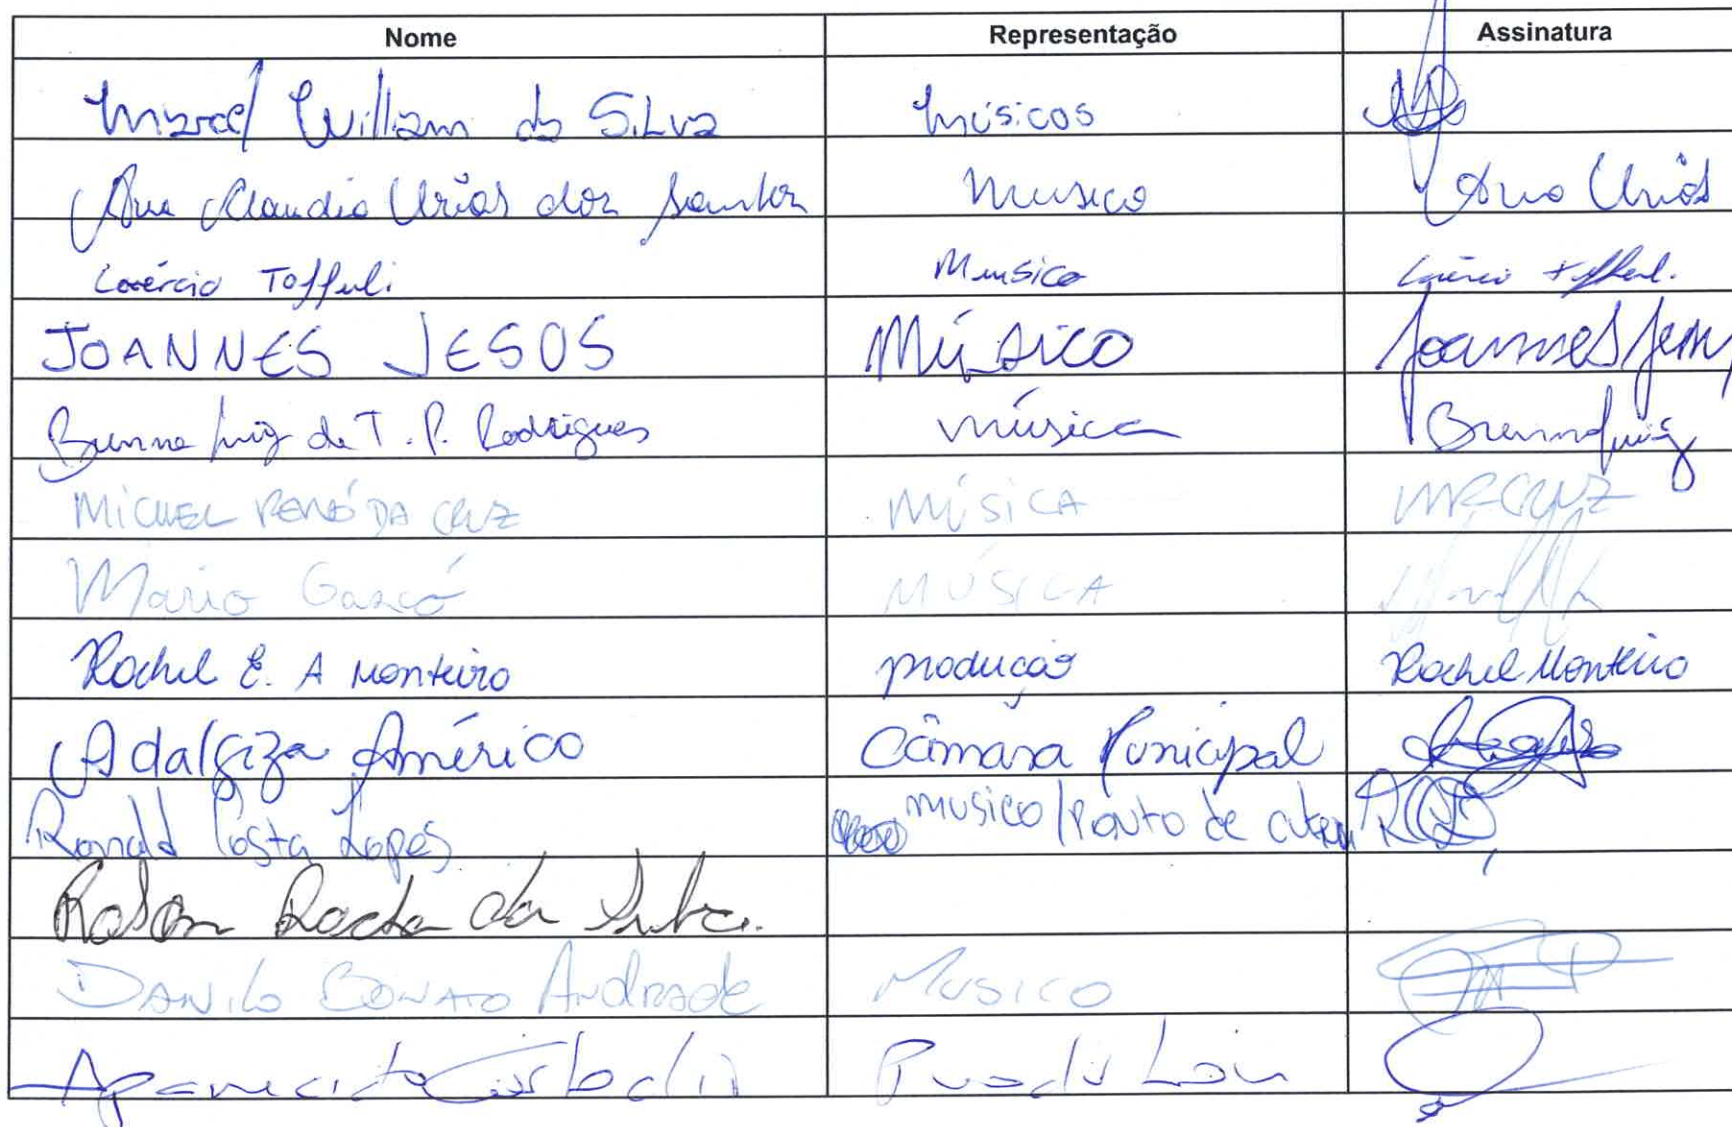 Nome Representação Assinatura
Marcel William da Silva Músicos
Ana Claudia Urias dos Santos Musico Ana Urias
Laércio Toffuli Musico Laércio
JOANNES JESOS Músico Joannes
Brunno Luiz de T. P. Rodrigues música Brunno Luiz
MICHEL RENÓ DA CRUZ MÚSICA MRCRUZ
Mario MÚSICA
Rachel E. A Monteiro produção Rachel Monteiro
Adalgiza Américo Câmara Municipal
Ronald Costa Lopes musico / Ponto de RCL
Robson Rocha da Silva.
DANILO BONATO Andrade MUSICO
Aparecido Custodio